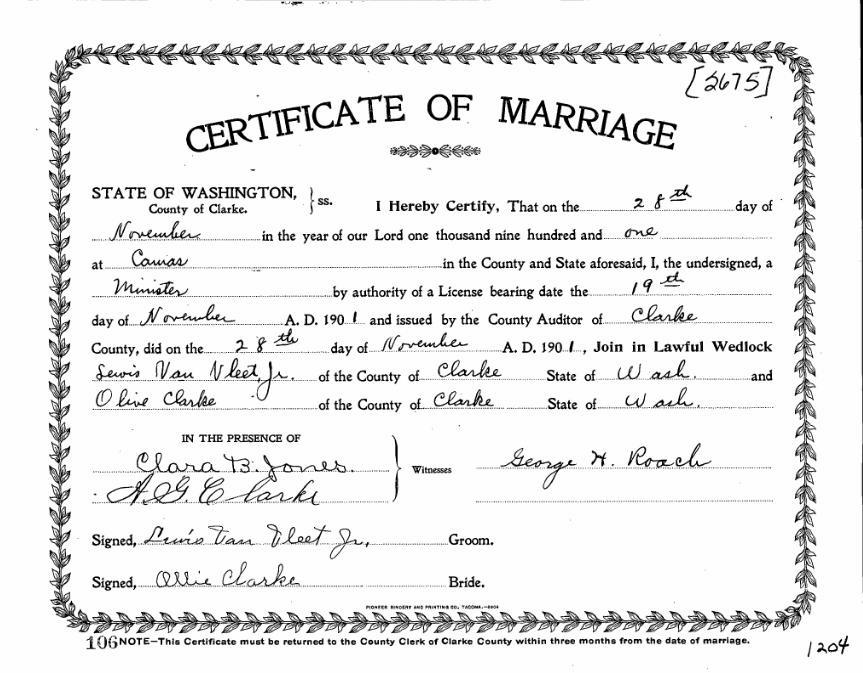 [2675]
CERTIFICATE OF MARRIAGE
STATE OF WASHINGTON,
County of Clarke.
} ss.
I Hereby Certify, That on the 28th day of
November in the year of our Lord one thousand nine hundred and one
at Camas in the County and State aforesaid, I, the undersigned, a
Minister by authority of a License bearing date the 19th
day of November A. D. 1901 and issued by the County Auditor of Clarke
County, did on the 28th day of November A. D. 1901, Join in Lawful Wedlock
Lewis Van Vleet, Jr. of the County of Clarke State of Wash. and
Olive Clarke of the County of Clarke State of Wash.
IN THE PRESENCE OF
Clara B. Jones.
A. G. Clarke
} Witnesses
George H. Roach
Signed, Lewis Van Vleet Jr, Groom.
Signed, Ollie Clarke Bride.
PIONEER BINDERY AND PRINTING CO., TACOMA.
106 NOTE—This Certificate must be returned to the County Clerk of Clarke County within three months from the date of marriage.
1204